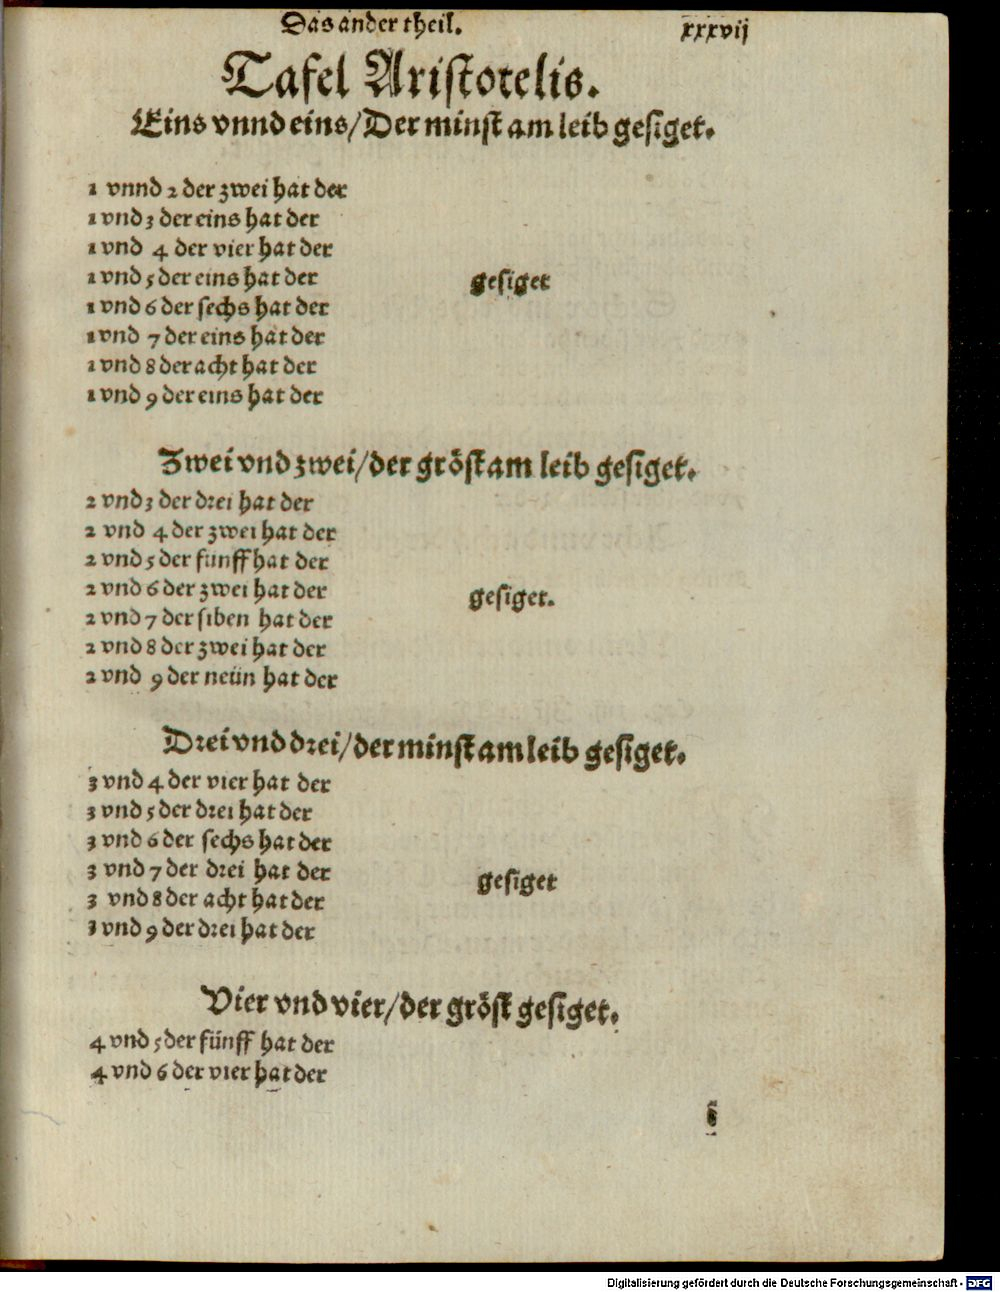 Das ander theil. xxxvij
Tafel Aristotelis.
Eins vnnd eins/Der minst am leib gesiget.
1 vnnd 2 der zwei hat der
1 vnd 3 der eins hat der
1 vnd 4 der vier hat der
1 vnd 5 der eins hat der
gesiget
1 vnd 6 der sechs hat der
1 vnd 7 der eins hat der
1 vnd 8 der acht hat der
1 vnd 9 der eins hat der
Zwei vnd zwei/der gröst am leib gesiget.
2 vnd 3 der drei hat der
2 vnd 4 der zwei hat der
2 vnd 5 der fünff hat der
2 vnd 6 der zwei hat der
gesiget.
2 vnd 7 der siben hat der
2 vnd 8 der zwei hat der
2 vnd 9 der neün hat der
Drei vnd drei/der minst am leib gesiget.
3 vnd 4 der vier hat der
3 vnd 5 der drei hat der
3 vnd 6 der sechs hat der
3 vnd 7 der drei hat der
gesiget
3 vnd 8 der acht hat der
3 vnd 9 der drei hat der
Vier vnd vier/der gröst gesiget.
4 vnd 5 der fünff hat der
4 vnd 6 der vier hat der
Digitalisierung gefördert durch die Deutsche Forschungsgemeinschaft - DFG